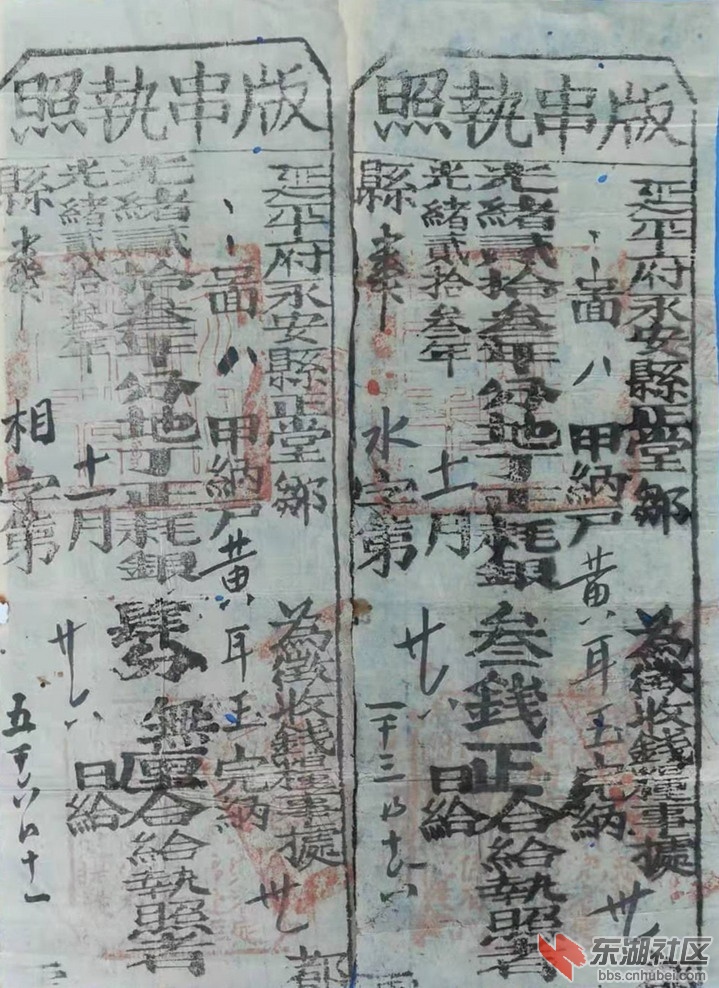 版串執照
延平府永安縣正堂鄒 為徵收錢糧事據 廿七
啚八甲納戶黃八耳玉完納
光緒貳拾叁年分地丁正耗銀叁錢正合給執照者
光緒貳拾叁年十一月廿六日給
縣 水字第一千三百十六
版串執照
延平府永安縣正堂鄒 為徵收錢糧事據 廿七都
啚八甲納戶黃八耳玉完納
光緒貳拾叁年分地丁正耗銀肆分無厘合給執照者
光緒貳拾叁年十一月廿六日給
縣 相字第五千六百十一
东湖社区
bbs.cnhubei.com